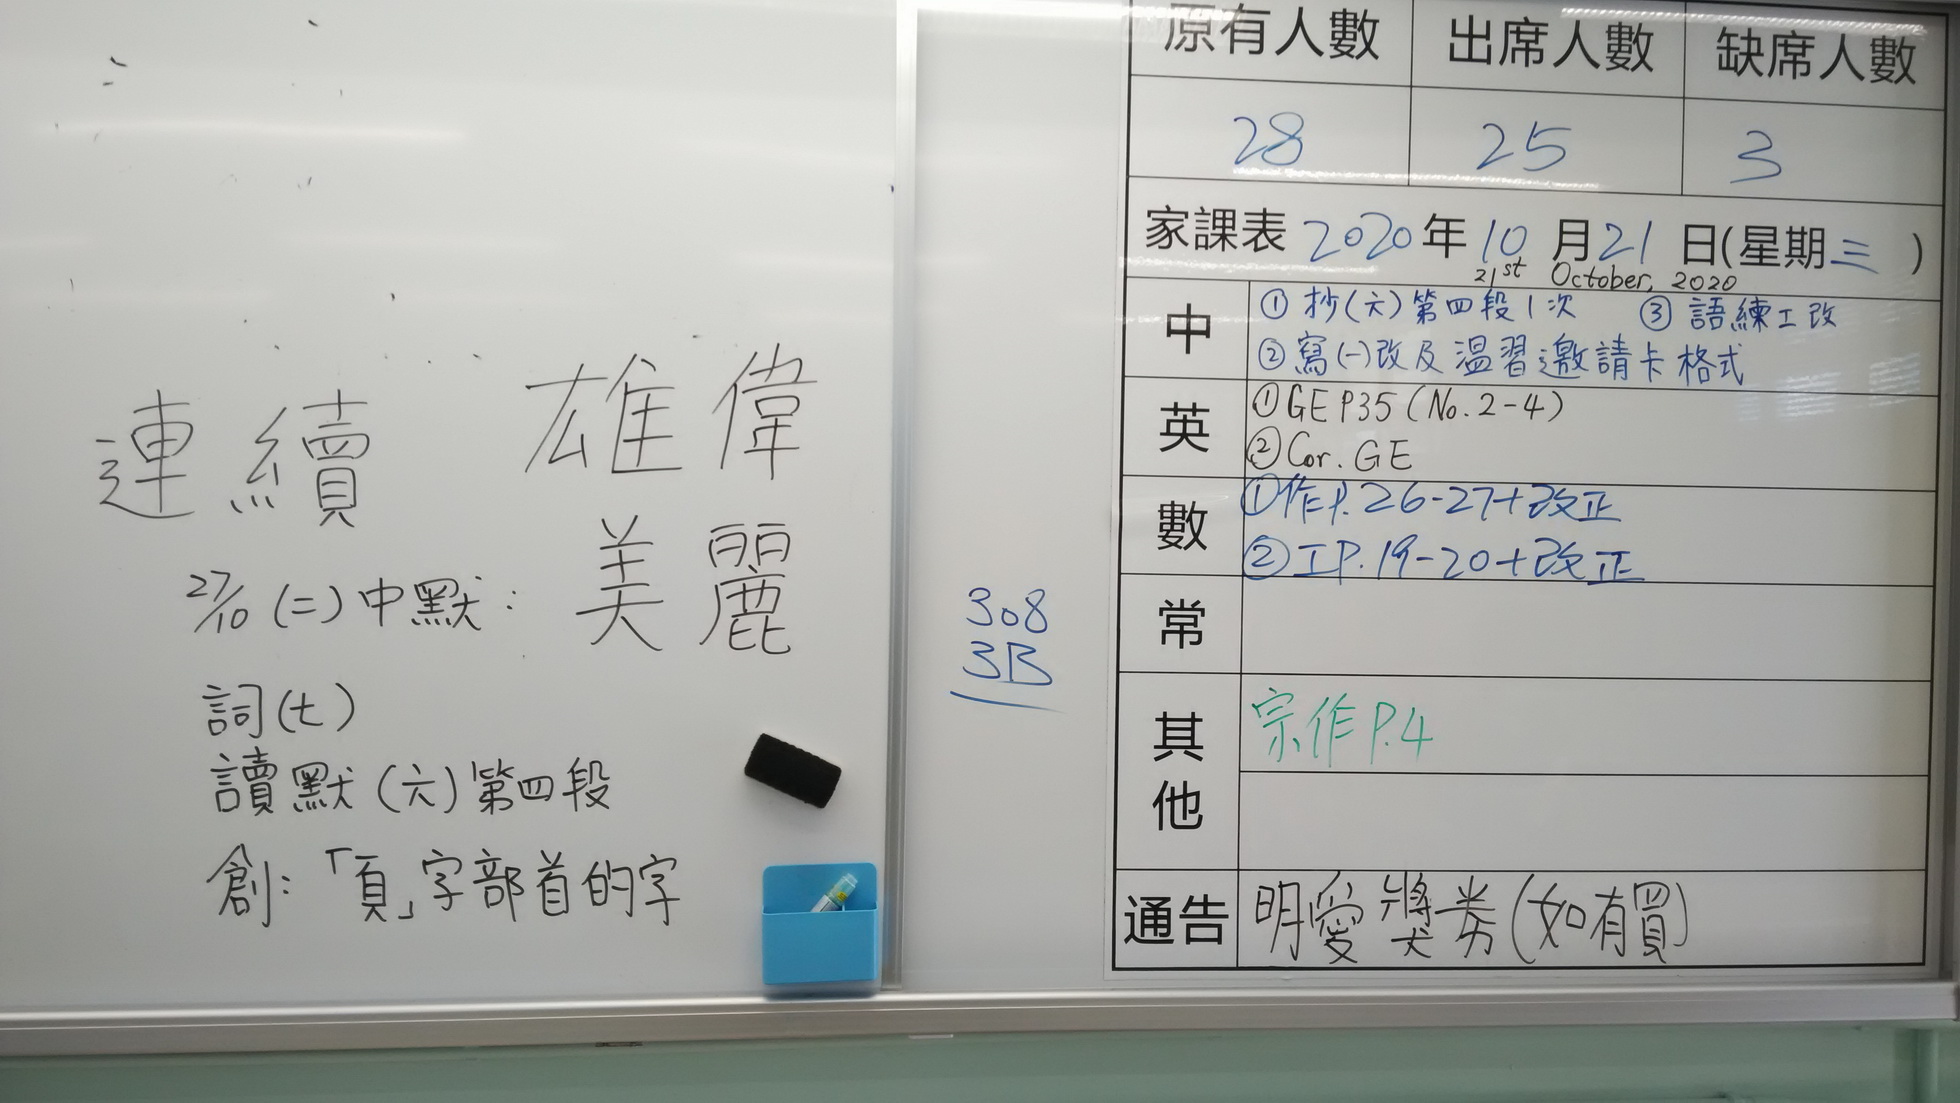 連續
雄偉
美麗
27/10 (二) 中默:
詞(七)
讀默(六)第四段
創:「頁」字部首的字
308
3B
原有人數 出席人數 缺席人數
28 25 3
家課表 2020年10月21日(星期三)
21st October, 2020
中 ①抄(六)第四段1次 ③語練工改
②寫(一)改及温習邀請卡格式
英 ①GE P35 (No.2-4)
②Cor. GE
數 ①作P.26-27+改正
②工P.19-20+改正
常
其他 宗作P.4
通告 明愛獎券(如有買)